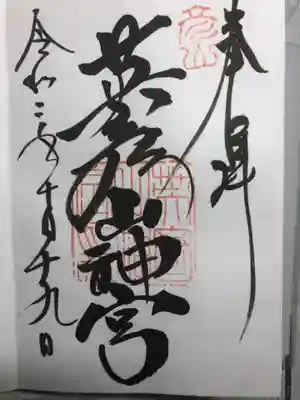 奉拝
英彦山神宮
令和二年十月十九日